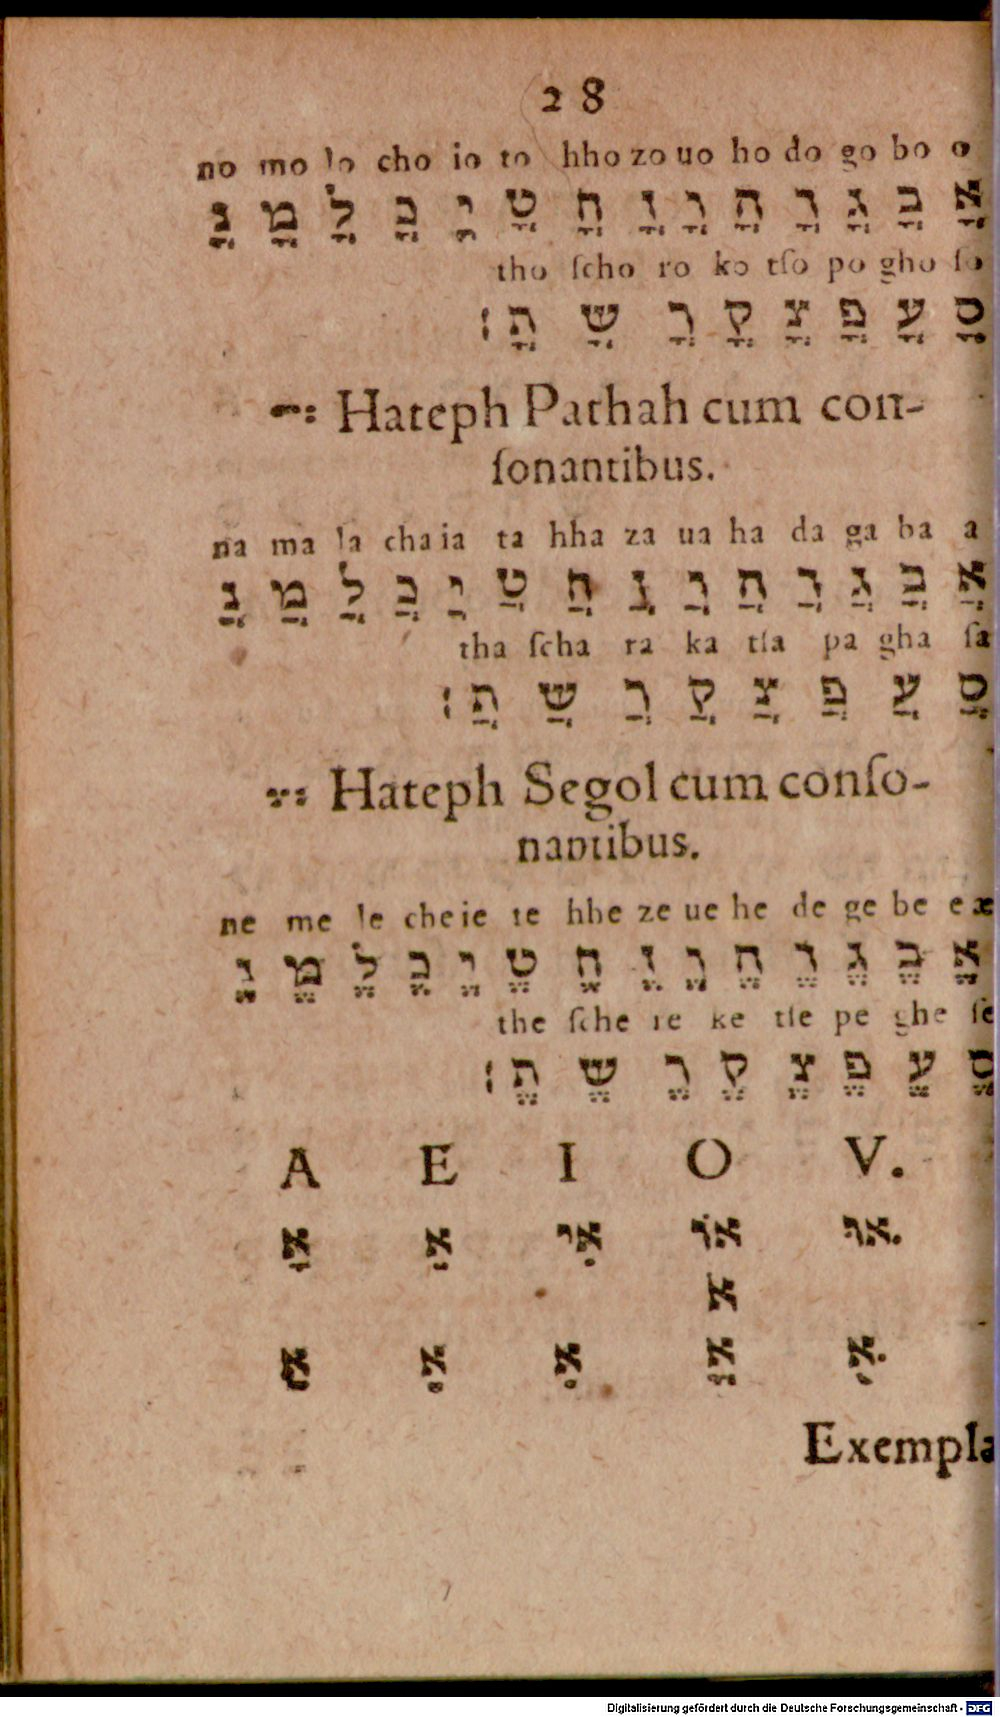 28
no mo lo cho io to hho zo uo ho do go bo o
אֳ בֳ גֳ דֳ הֳ וֳ זֳ חֳ טֳ יֳ כֳ לֳ מֳ נֳ
tho ſcho ro ko tſo po gho ſo
סֳ עֳ פֳ צֳ קֳ רֳ שֳ תֳ׃
ֲ Hateph Pathah cum con-
ſonantibus.
na ma la cha ia ta hha za ua ha da ga ba a
אֲ בֲ גֲ דֲ הֲ וֲ זֲ חֲ טֲ יֲ כֲ לֲ מֲ נֲ
tha ſcha ra ka tſa pa gha ſa
סֲ עֲ פֲ צֲ קֲ רֲ שֲ תֲ׃
ֱ Hateph Segol cum conſo-
nantibus.
ne me le che ie te hhe ze ue he de ge be e æ
אֱ בֱ גֱ דֱ הֱ וֱ זֱ חֱ טֱ יֱ כֱ לֱ מֱ נֱ
the ſche re ke tſe pe ghe ſe
סֱ עֱ פֱ צֱ קֱ רֱ שֱ תֱ׃
A E I O V.
אָ אֵ אִי אוֹ אוּ.
א
אַ אֶ אִ אֳ אֻ
Exempla
Digitalisierung gefördert durch die Deutsche Forschungsgemeinschaft - DFG